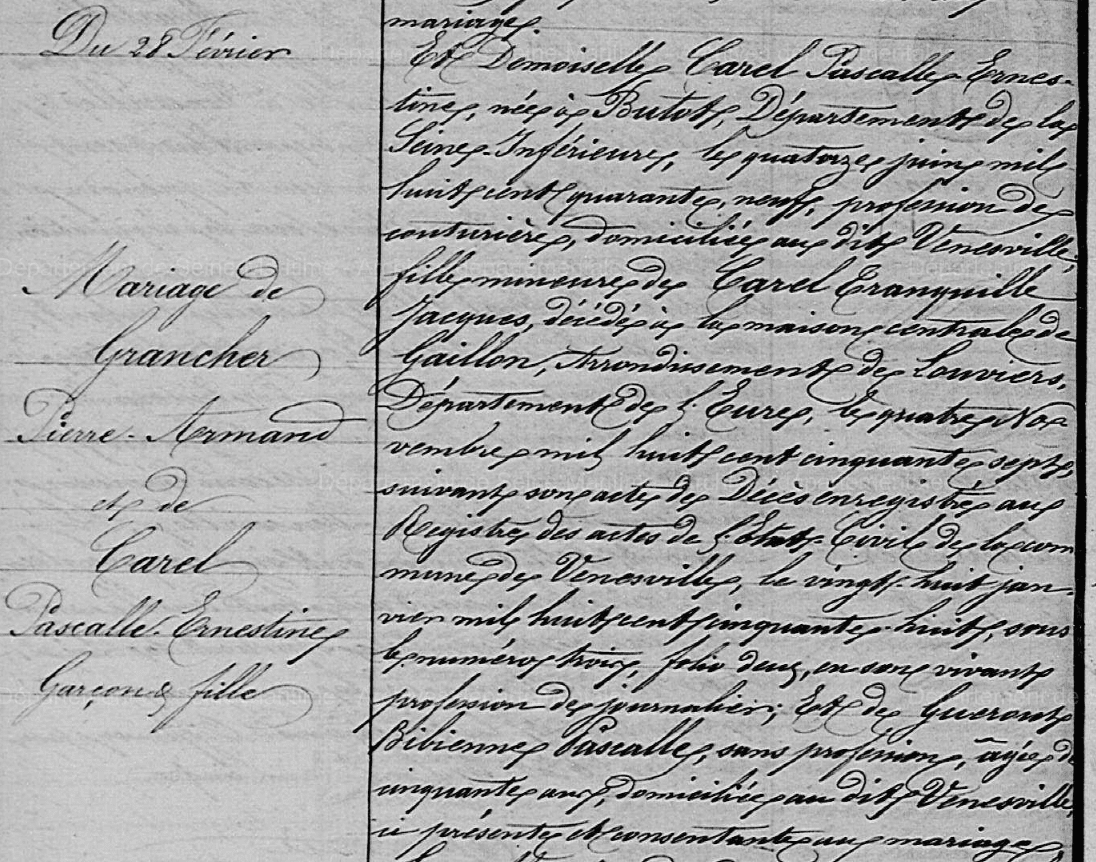 Du 28 Février
Mariage de
Grancher
Pierre-Armand
et de
Carel
Pascalle-Ernestine
Garçon & fille
mariage
Et Demoiselle Carel Pascalle-Ernes-
tine, née à Butot, Département de la
Seine-Inférieure, le quatorze juin mil
huit cent quarante, neuf, profession de
couturière, domiciliée au dit Venesville,
fille mineure de Carel Tranquille
Jacques, décédé à la maison centrale de
Gaillon, Arrondissement de Louviers,
Département de l'Eure, le quatre No
vembre mil huit cent cinquante sept,
suivant son acte de Décès enregistré au
Registre des actes de l'Etat-Civil de la com
mune de Venesville, le vingt-huit jan-
vier mil huit cent cinquante-huit, sous
le numéro trois, folio deux, en son vivant
profession de journalier; Et de Gueroult
Bibienne Pascalle, sans profession, âgée de
cinquante ans, domiciliée au dit Venesville,
ici présente et consentante au mariage,